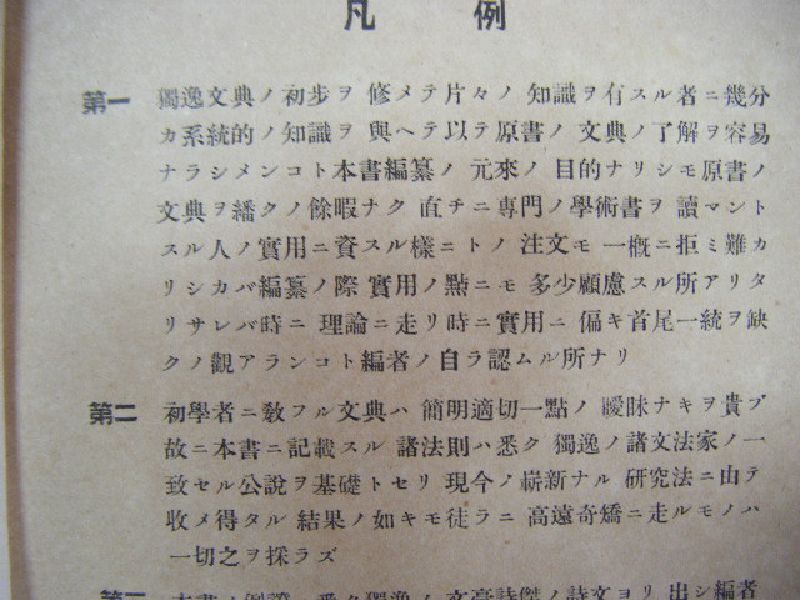 凡例
第一 獨逸文典ノ初步ヲ 修メテ片々ノ 知識ヲ有スル者ニ幾分
カ系統的ノ知識ヲ 與ヘテ以テ原書ノ 文典ノ了解ヲ容易
ナラシメンコト本書編纂ノ 元來ノ 目的ナリシモ原書ノ
文典ヲ繙クノ餘暇ナク 直チニ專門ノ學術書ヲ 讀マント
スル人ノ實用ニ資スル樣ニトノ 注文モ 一槪ニ拒ミ難カ
リシカバ編纂ノ際 實用ノ點ニモ 多少顧慮スル所アリタ
リサレバ時ニ 理論ニ走リ時ニ實用ニ 偏キ首尾一統ヲ缺
クノ觀アランコト編者ノ自ラ認ムル所ナリ
第二 初學者ニ敎フル文典ハ 簡明適切一點ノ 曖昧ナキヲ貴ブ
故ニ本書ニ記載スル 諸法則ハ悉ク 獨逸ノ諸文法家ノ一
致セル公說ヲ基礎トセリ 現今ノ嶄新ナル 硏究法ニ由テ
收メ得タル 結果ノ如キモ徒ラニ 高遠奇矯ニ走ルモノハ
一切之ヲ採ラズ
本書ノ例證ハ悉ク獨逸ノ 文豪詩傑ノ詩文ヨリ 出シ編者